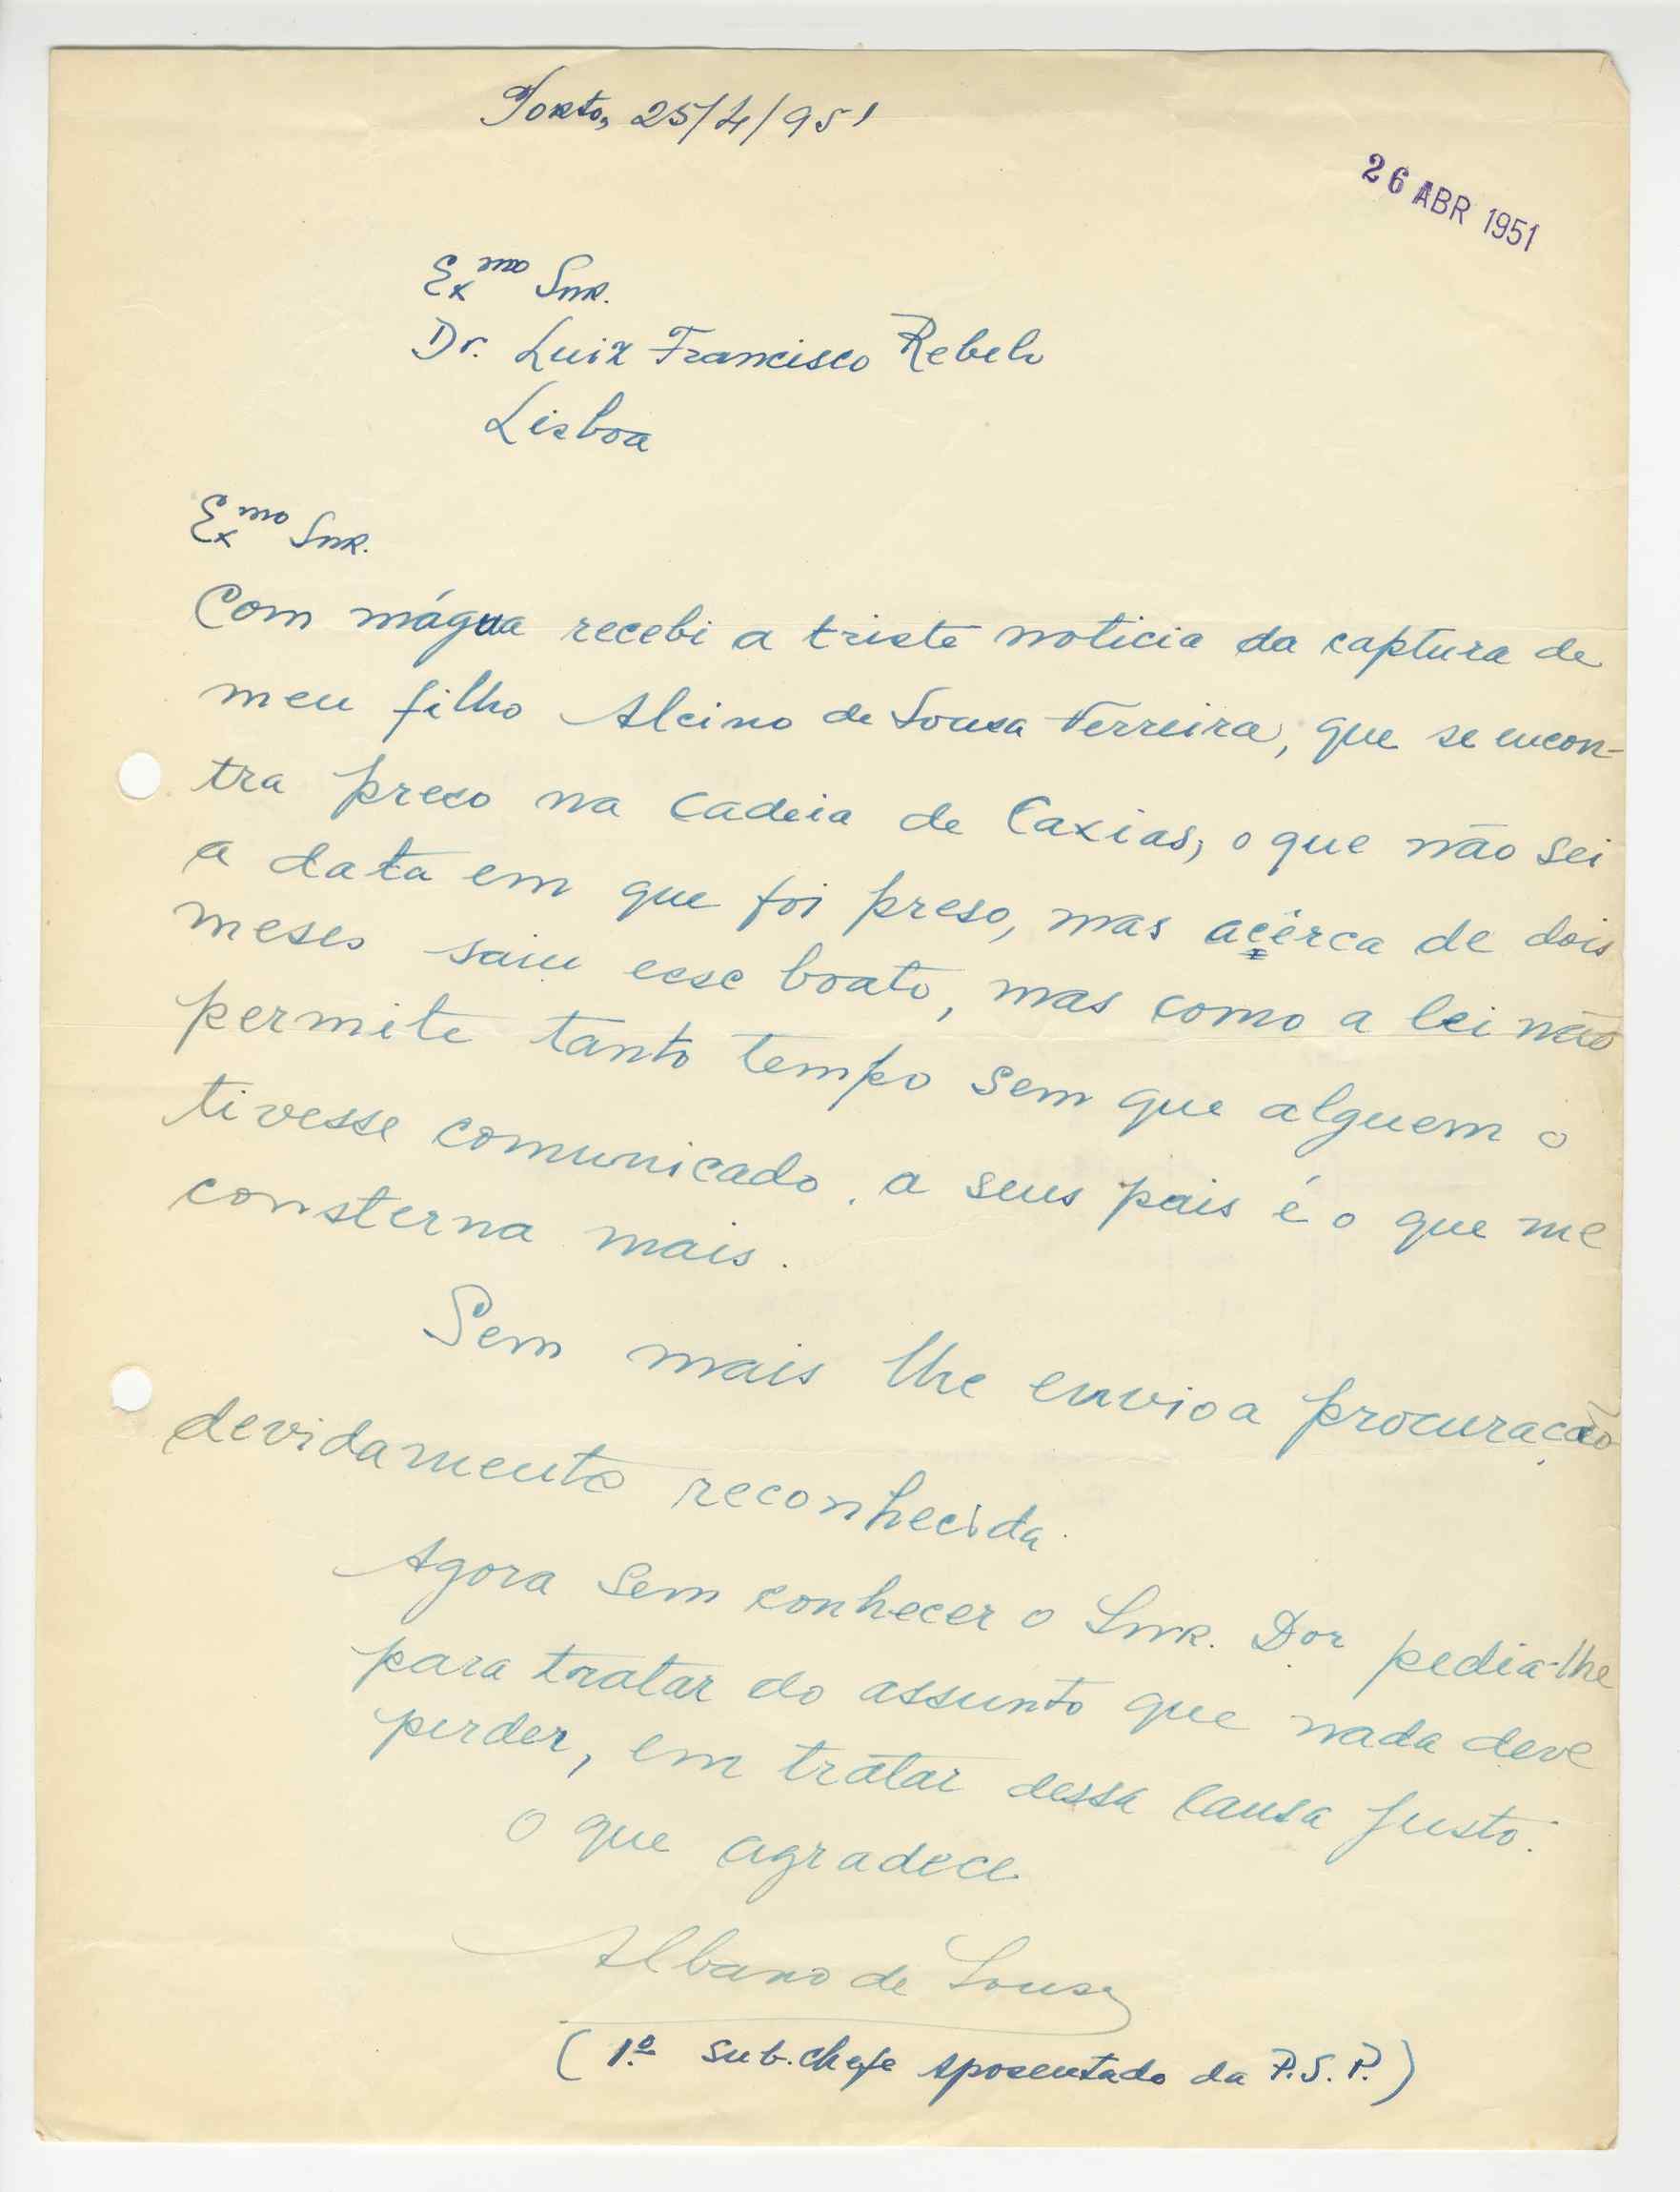 Porto, 25/4/951
26 ABR 1951
Exmo Snr.
Dr. Luiz Francisco Rebelo
Lisboa
Exmo Snr.
Com mágua recebi a triste noticia da captura de
meu filho Alcino de Sousa Ferreira, que se encon-
tra preso na cadeia de Caxias, o que não sei
a data em que foi preso, mas acêrca de dois
meses saiu esse boato, mas como a lei não
permite tanto tempo sem que alguem o
tivesse comunicado. a seus pais é o que me
consterna mais.
Sem mais lhe envio a procuração
devidamente reconhecida.
Agora sem conhecer o Snr. Dor pedia-lhe
para tratar do assunto que nada deve
perder, em tratar dessa causa justo.
O que agradece
Albano de Sousa
(1º sub.chefe aposentado da P.S.P.)